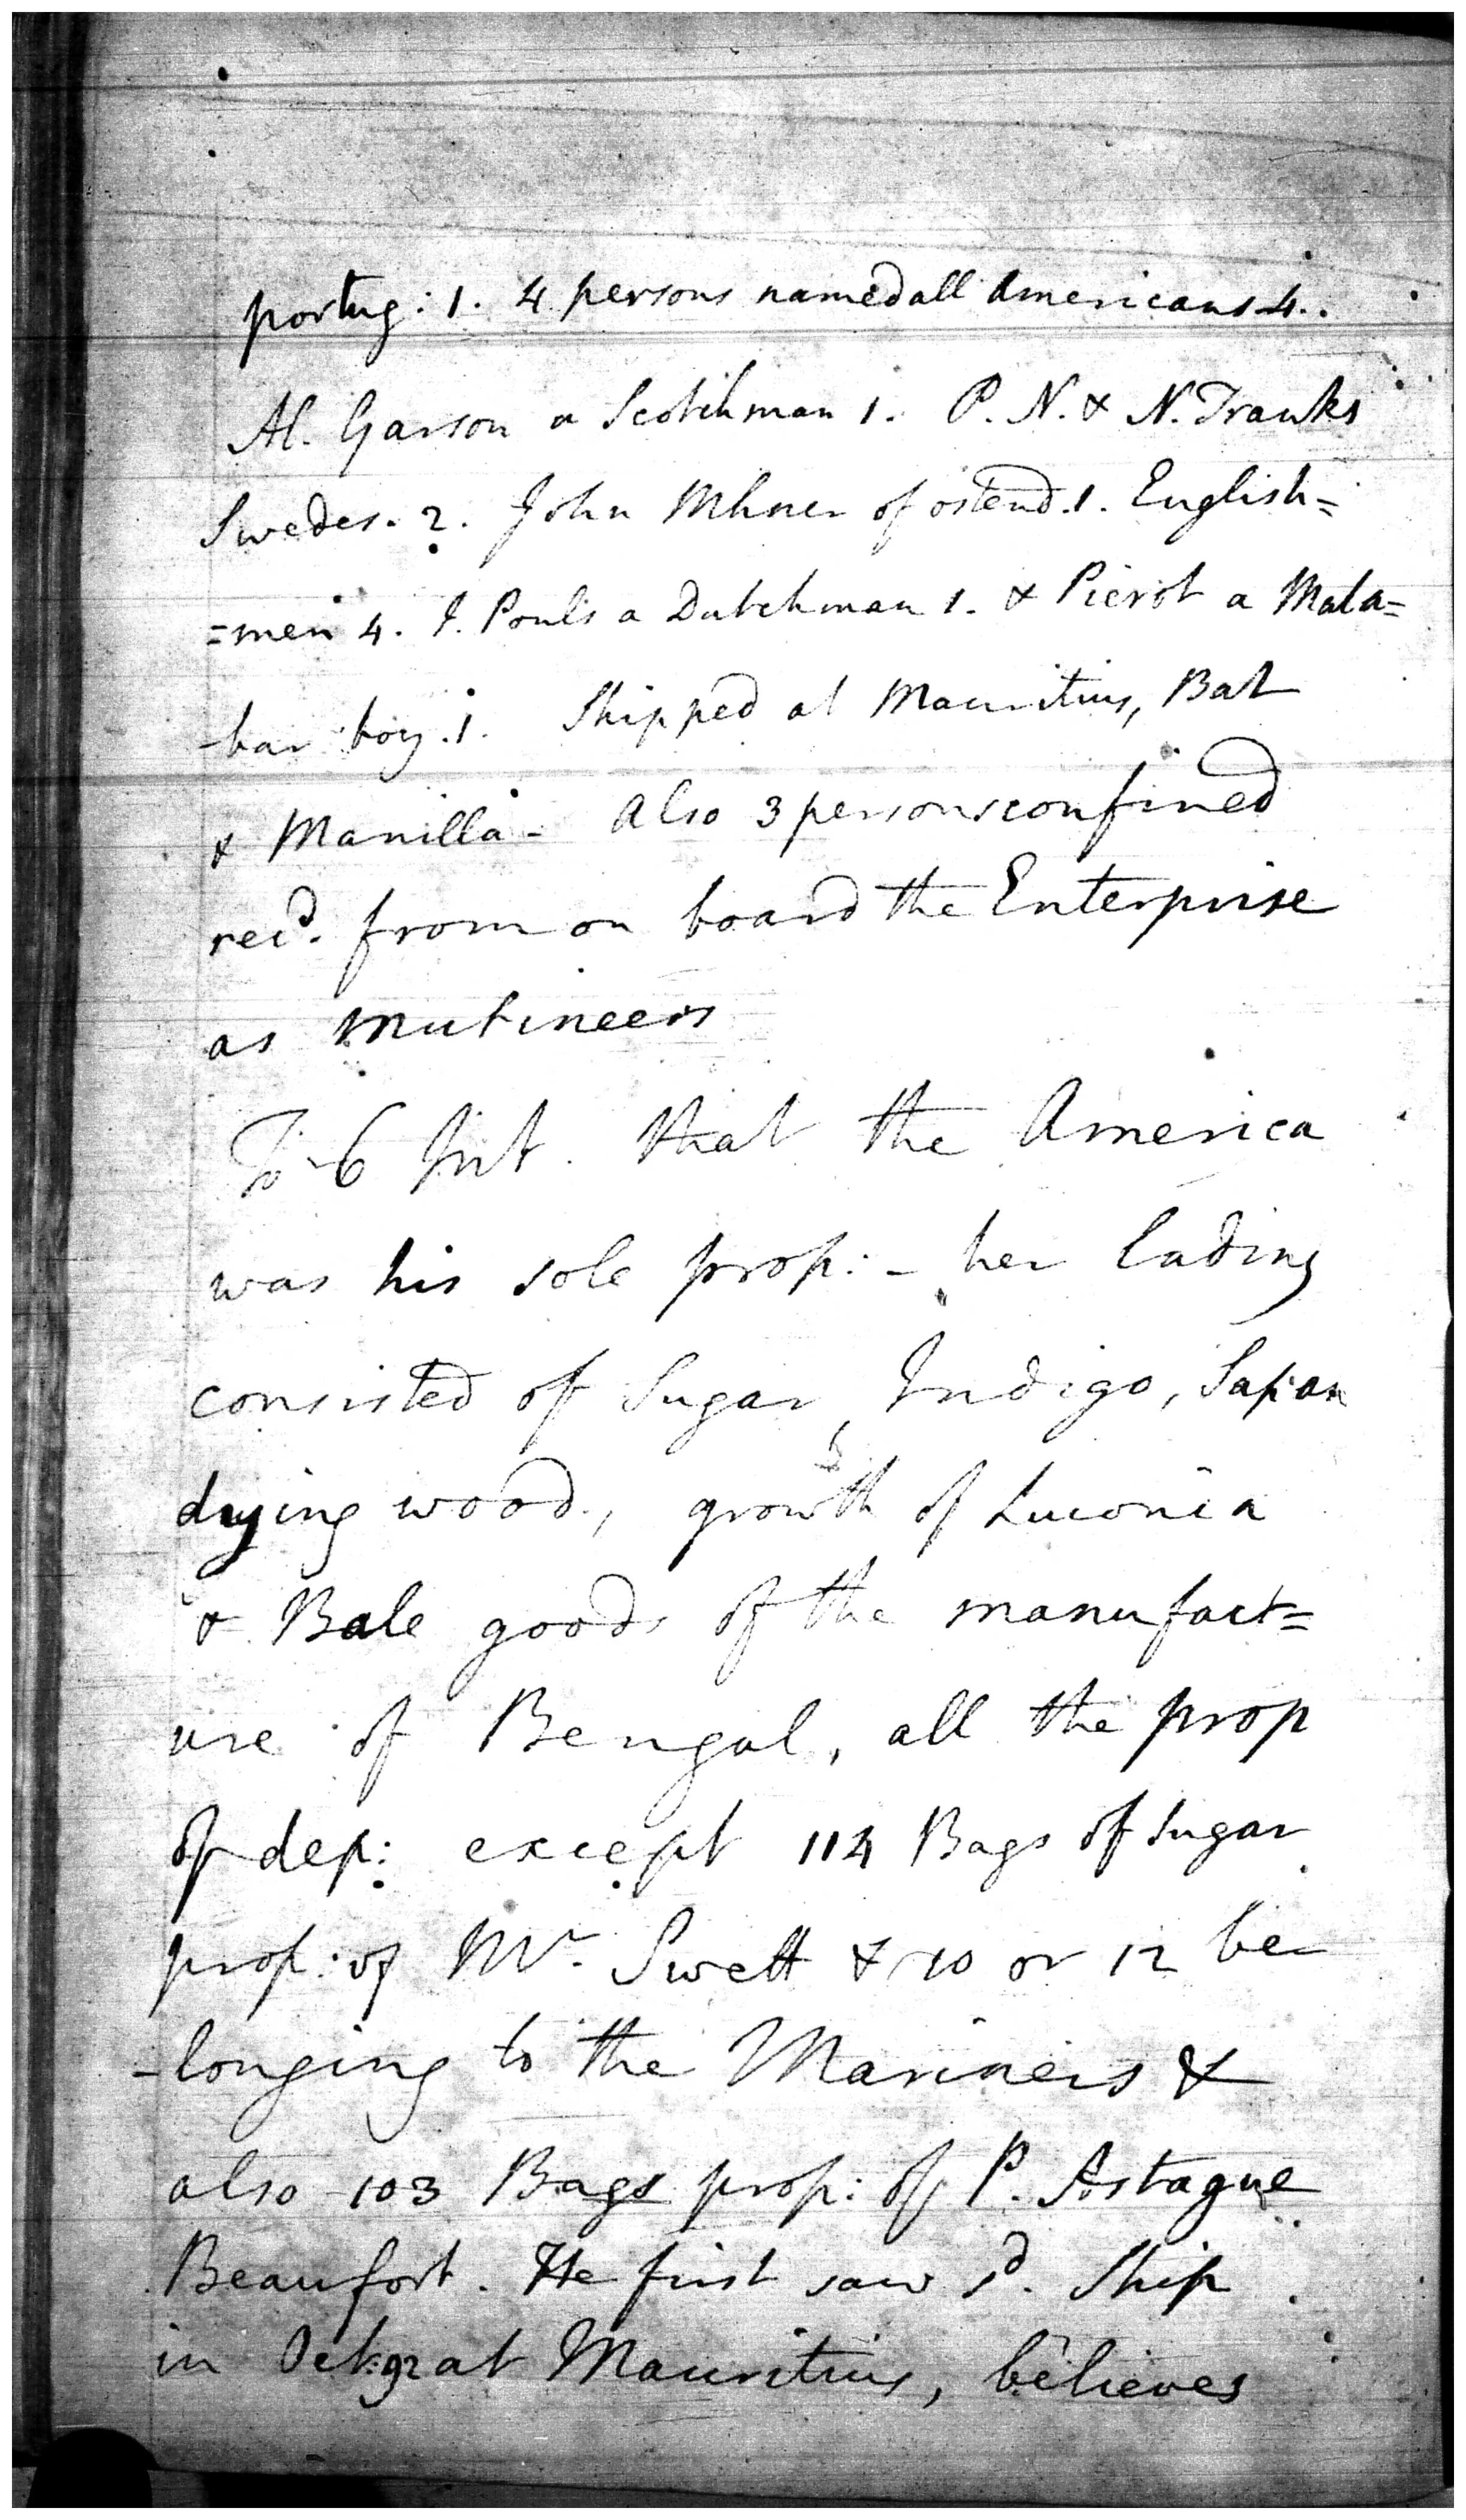 portug: 1. 4 persons named all Americans 4..
Al. Garson a Scotchman 1. P. N. & N. Tranks
Swedes. 2. John Mhner of ostend. 1. English=
=men 4. J. Pouls a Dutchman 1. & Pierot a Mala=
-bar boy. 1. Shipped at Mauritius, Bat
& Manilla - Also 3 persons confined
recd. from on board the Enterprise
as Mutineers
To 6 Int. that the America
was his sole prop: - her lading
consisted of Sugar, Indigo, Sapan
dying wood, growth of Luconia
& Bale goods of the manufact=
ure of Bengal, all the prop
of dep: except 114 Bags of Sugar
prop: of Mr. Swett & 10 or 12 be
-longing to the Mariners &
also 103 Bags prop: of P. Astague
Beaufort. He first saw sd. Ship
in Oct. 92 at Mauritius, believes